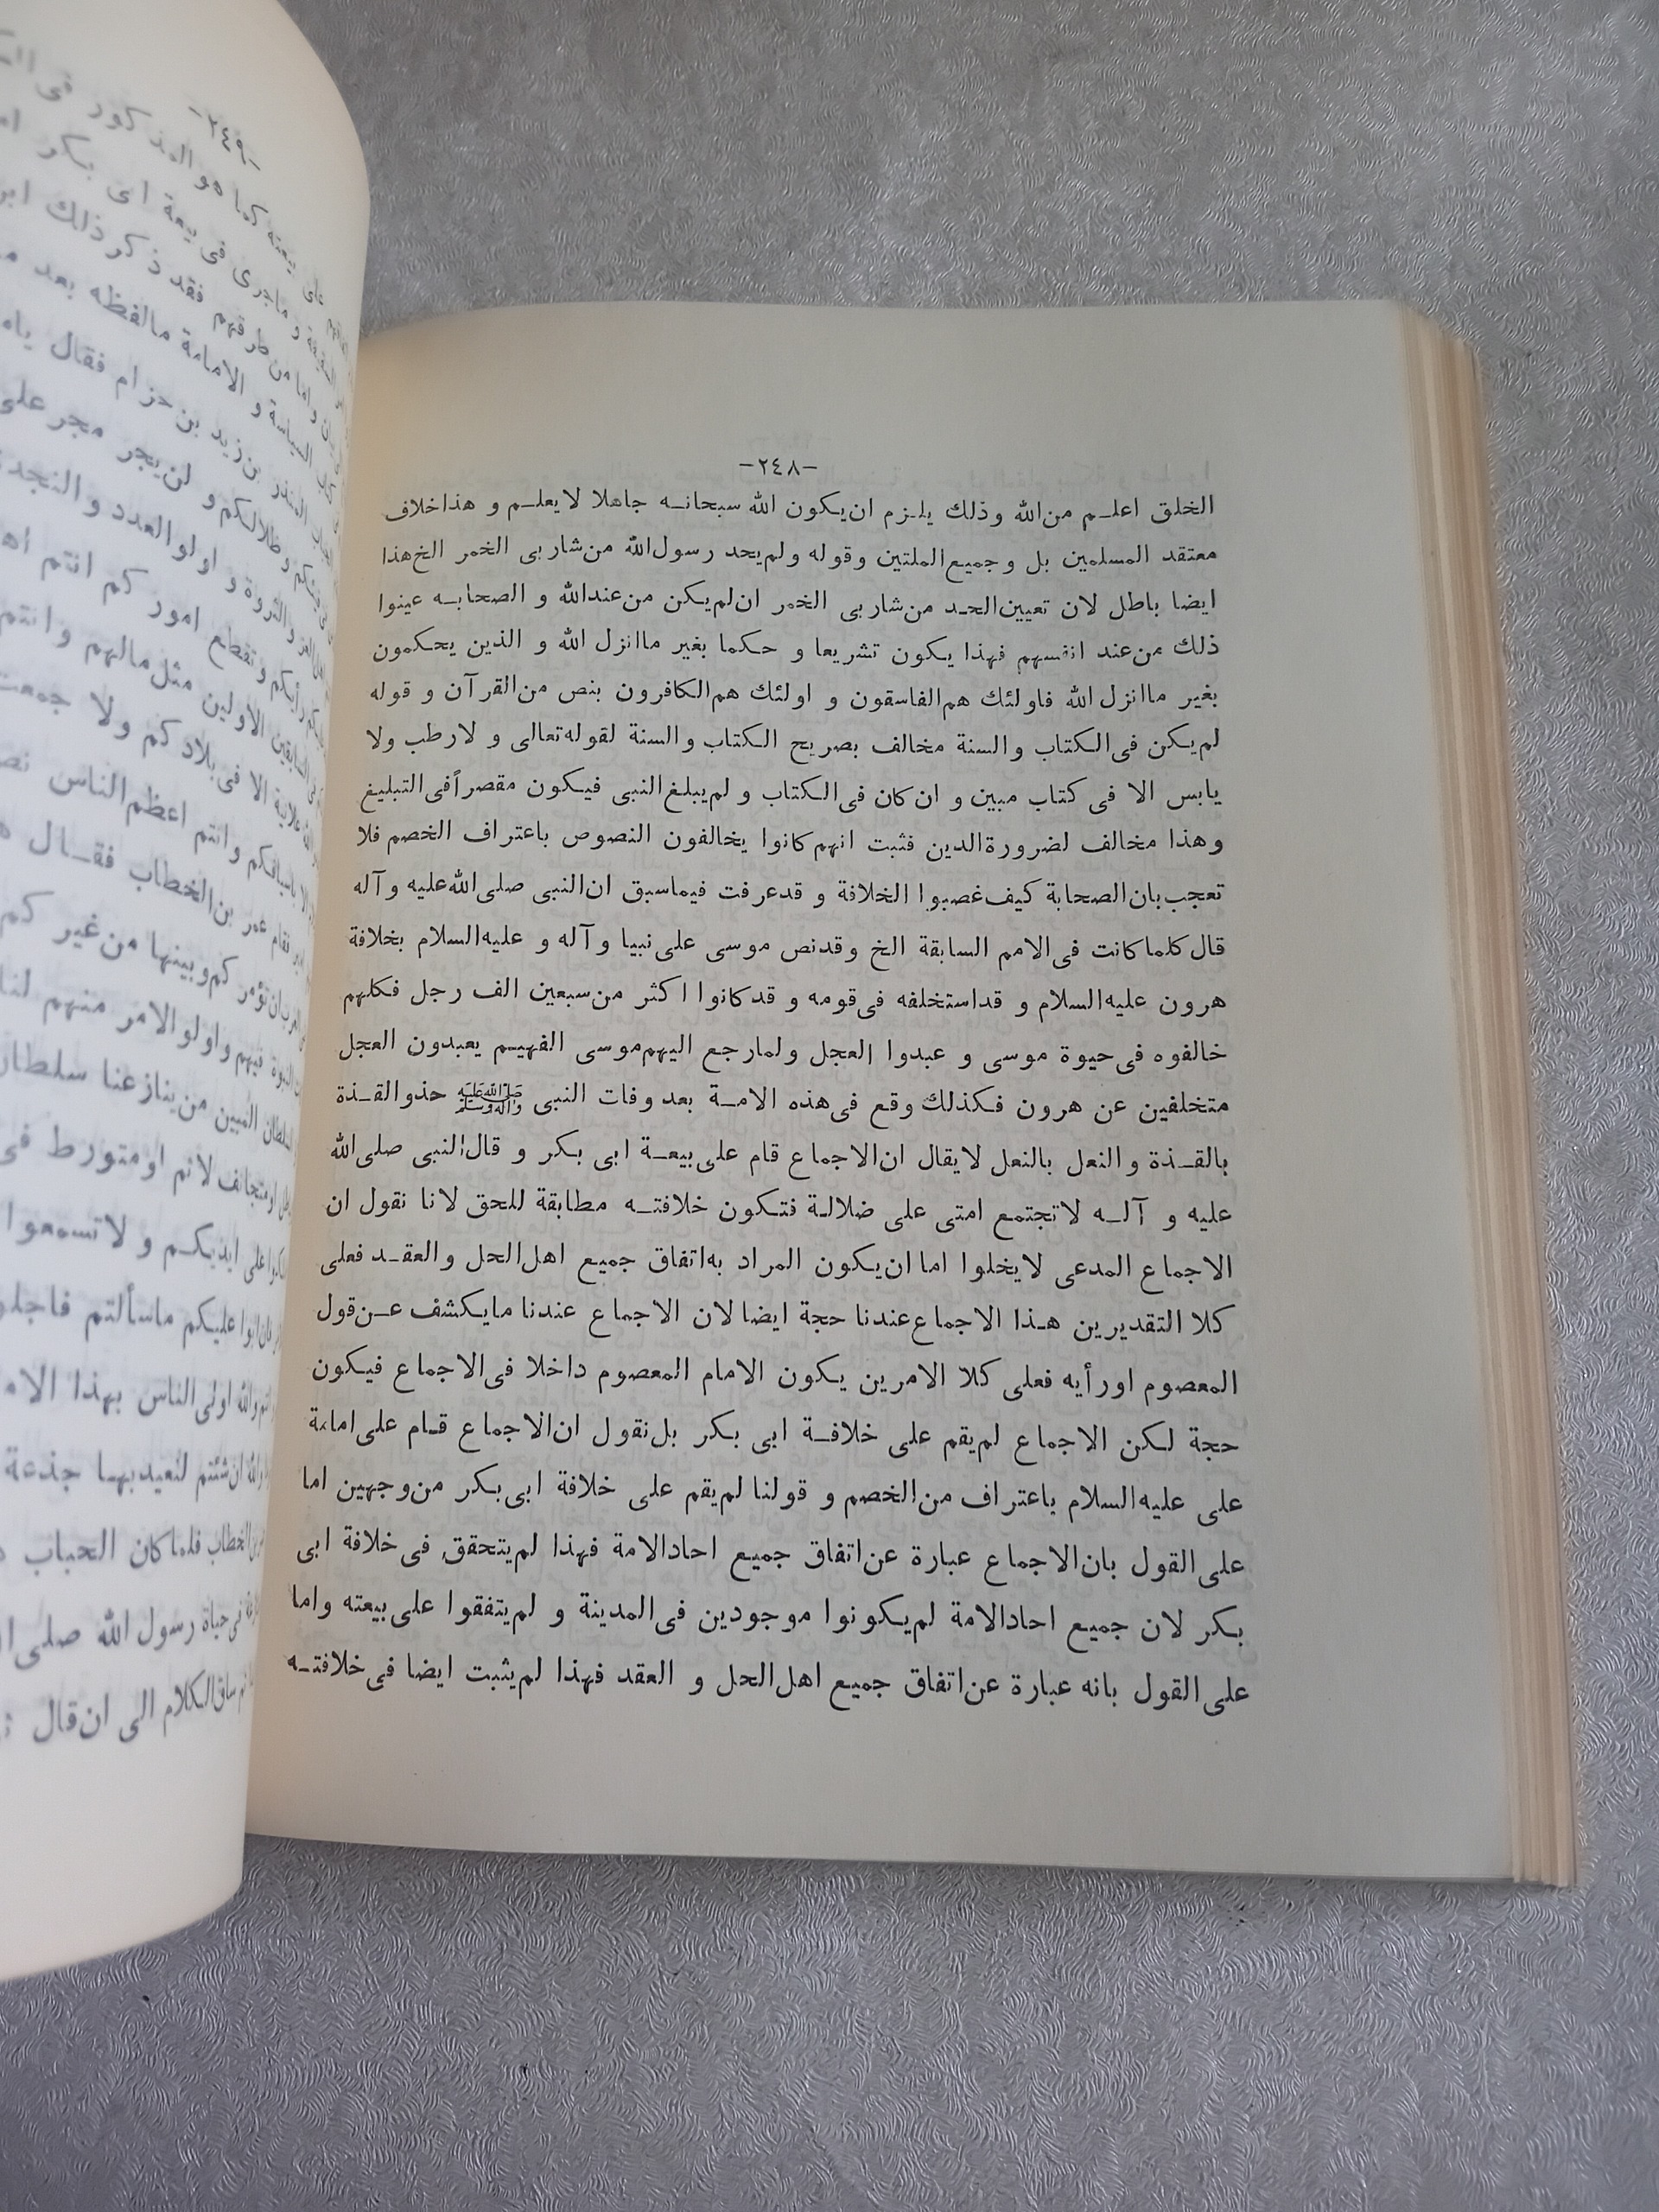 -٢٤٨-
الخلق اعلـم من الله وذلك يلـزم ان يكون الله سبحانـه جاهلا لايعلـم و هذا خلاف
معتقد المسلمين بل وجميع الملتين وقوله ولم يحد رسول الله من شاربى الخمر الخ هذا
ايضا باطل لان تعيين الحـد من شاربى الخمر ان لم يكن من عند الله و الصحابـه عينوا
ذلك من عند انفسهم فهذا يكون تشريعا و حكما بغير ما انزل الله و الذين يحكمون
بغير ما انزل الله فاولئك هم الفاسقون و اولئك هم الكافرون بنص من القرآن و قوله
لم يكن فى الكتاب والسنة مخالف بصريح الكتاب والسنة لقوله تعالى و لارطب ولا
يابس الا فى كتاب مبين و ان كان فى الكتاب و لم يبلغ النبى فيكون مقصراً فى التبليغ
وهذا مخالف لضرورة الدين فثبت انهم كانوا يخالفون النصوص باعتراف الخصم فلا
تعجب بان الصحابة كيف غصبوا الخلافة و قد عرفت فيما سبق ان النبى صلى الله عليه وآله
قال كلما كانت فى الامم السابقة الخ وقد نص موسى على نبيا وآله و عليه السلام بخلافة
هرون عليه السلام و قد استخلفه فى قومه و قد كانوا اكثر من سبعين الف رجل فكلهم
خالفوه فى حيوة موسى و عبدوا العجل ولما رجع اليهم موسى الفهيـم يعبدون العجل
متخلفين عن هرون فكذلك وقع فى هذه الامـة بعد وفات النبى صلى الله عليه وآله وسلم حذو القـذة
بالقـذة والنعل بالنعل لايقال ان الاجماع قام على بيعـة ابى بكر و قال النبى صلى الله
عليه و آلـه لاتجتمع امتى على ضلالة فتكون خلافتـه مطابقة للحق لانا نقول ان
الاجماع المدعى لايخلوا اما ان يكون المراد به اتفاق جميع اهل الحل والعقـد فعلى
كلا التقديرين هـذا الاجماع عندنا حجة ايضا لان الاجماع عندنا ما يكشف عـن قول
المعصوم او رأيه فعلى كلا الامرين يكون الامام المعصوم داخلا فى الاجماع فيكون
حجة لكن الاجماع لم يقم على خلافـة ابى بكر بل نقول ان الاجماع قـام على امامة
على عليه السلام باعتراف من الخصم و قولنا لم يقم على خلافة ابى بكر من وجهين اما
على القول بان الاجماع عبارة عن اتفاق جميع احاد الامة فهذا لم يتحقق فى خلافة ابى
بكر لان جميع احاد الامة لم يكونوا موجودين فى المدينة و لم يتفقوا على بيعته واما
على القول بانه عبارة عن اتفاق جميع اهل الحل و العقد فهذا لم يثبت ايضا فى خلافتـه
-٢٤٩-
بيعته كما هو المذكور فى
و ماجرى فى بيعة ابى بكر
من طرقهم فقد ذكر ذلك
و الامامة مالفظه بعد
المنذر بن زيد بن حزام فقال
وظلالكم و لن يجر مجر على
و الثروة و اولو العدد و النجدة
رأيكم و تقطع اموركم انتم
السابقين الاولين مثل مالهم و انتم
علانية الا فى بلادكم ولا جمعت
باسيافكم و انتم اعظم الناس
فقام عمر بن الخطاب فقـال
بان تؤمركم وبينها من غيركم
النبوة فيهم و اولو الامر منهم لنا
السلطان المبين من ينازعنا سلطان
او متجانف لاثم او متورط فى
على ايديكـم و لا تسمعوا
ابوا عليكم ما سألتم فاجلو
والله اولى الناس بهذا
والله ان شئتم لنعيد بهـا جذعة
الخطاب فلما كان الحباب
فى حياة رسول الله صلى
ثم ساق الكلام الى ان قال